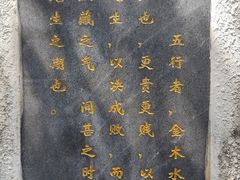 五行者，金木水
也，更贵更贱，以
生，以决成败，而
藏之气 间甚之时
生之期也。